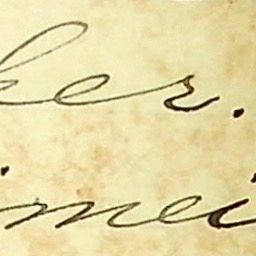 ker.
imei